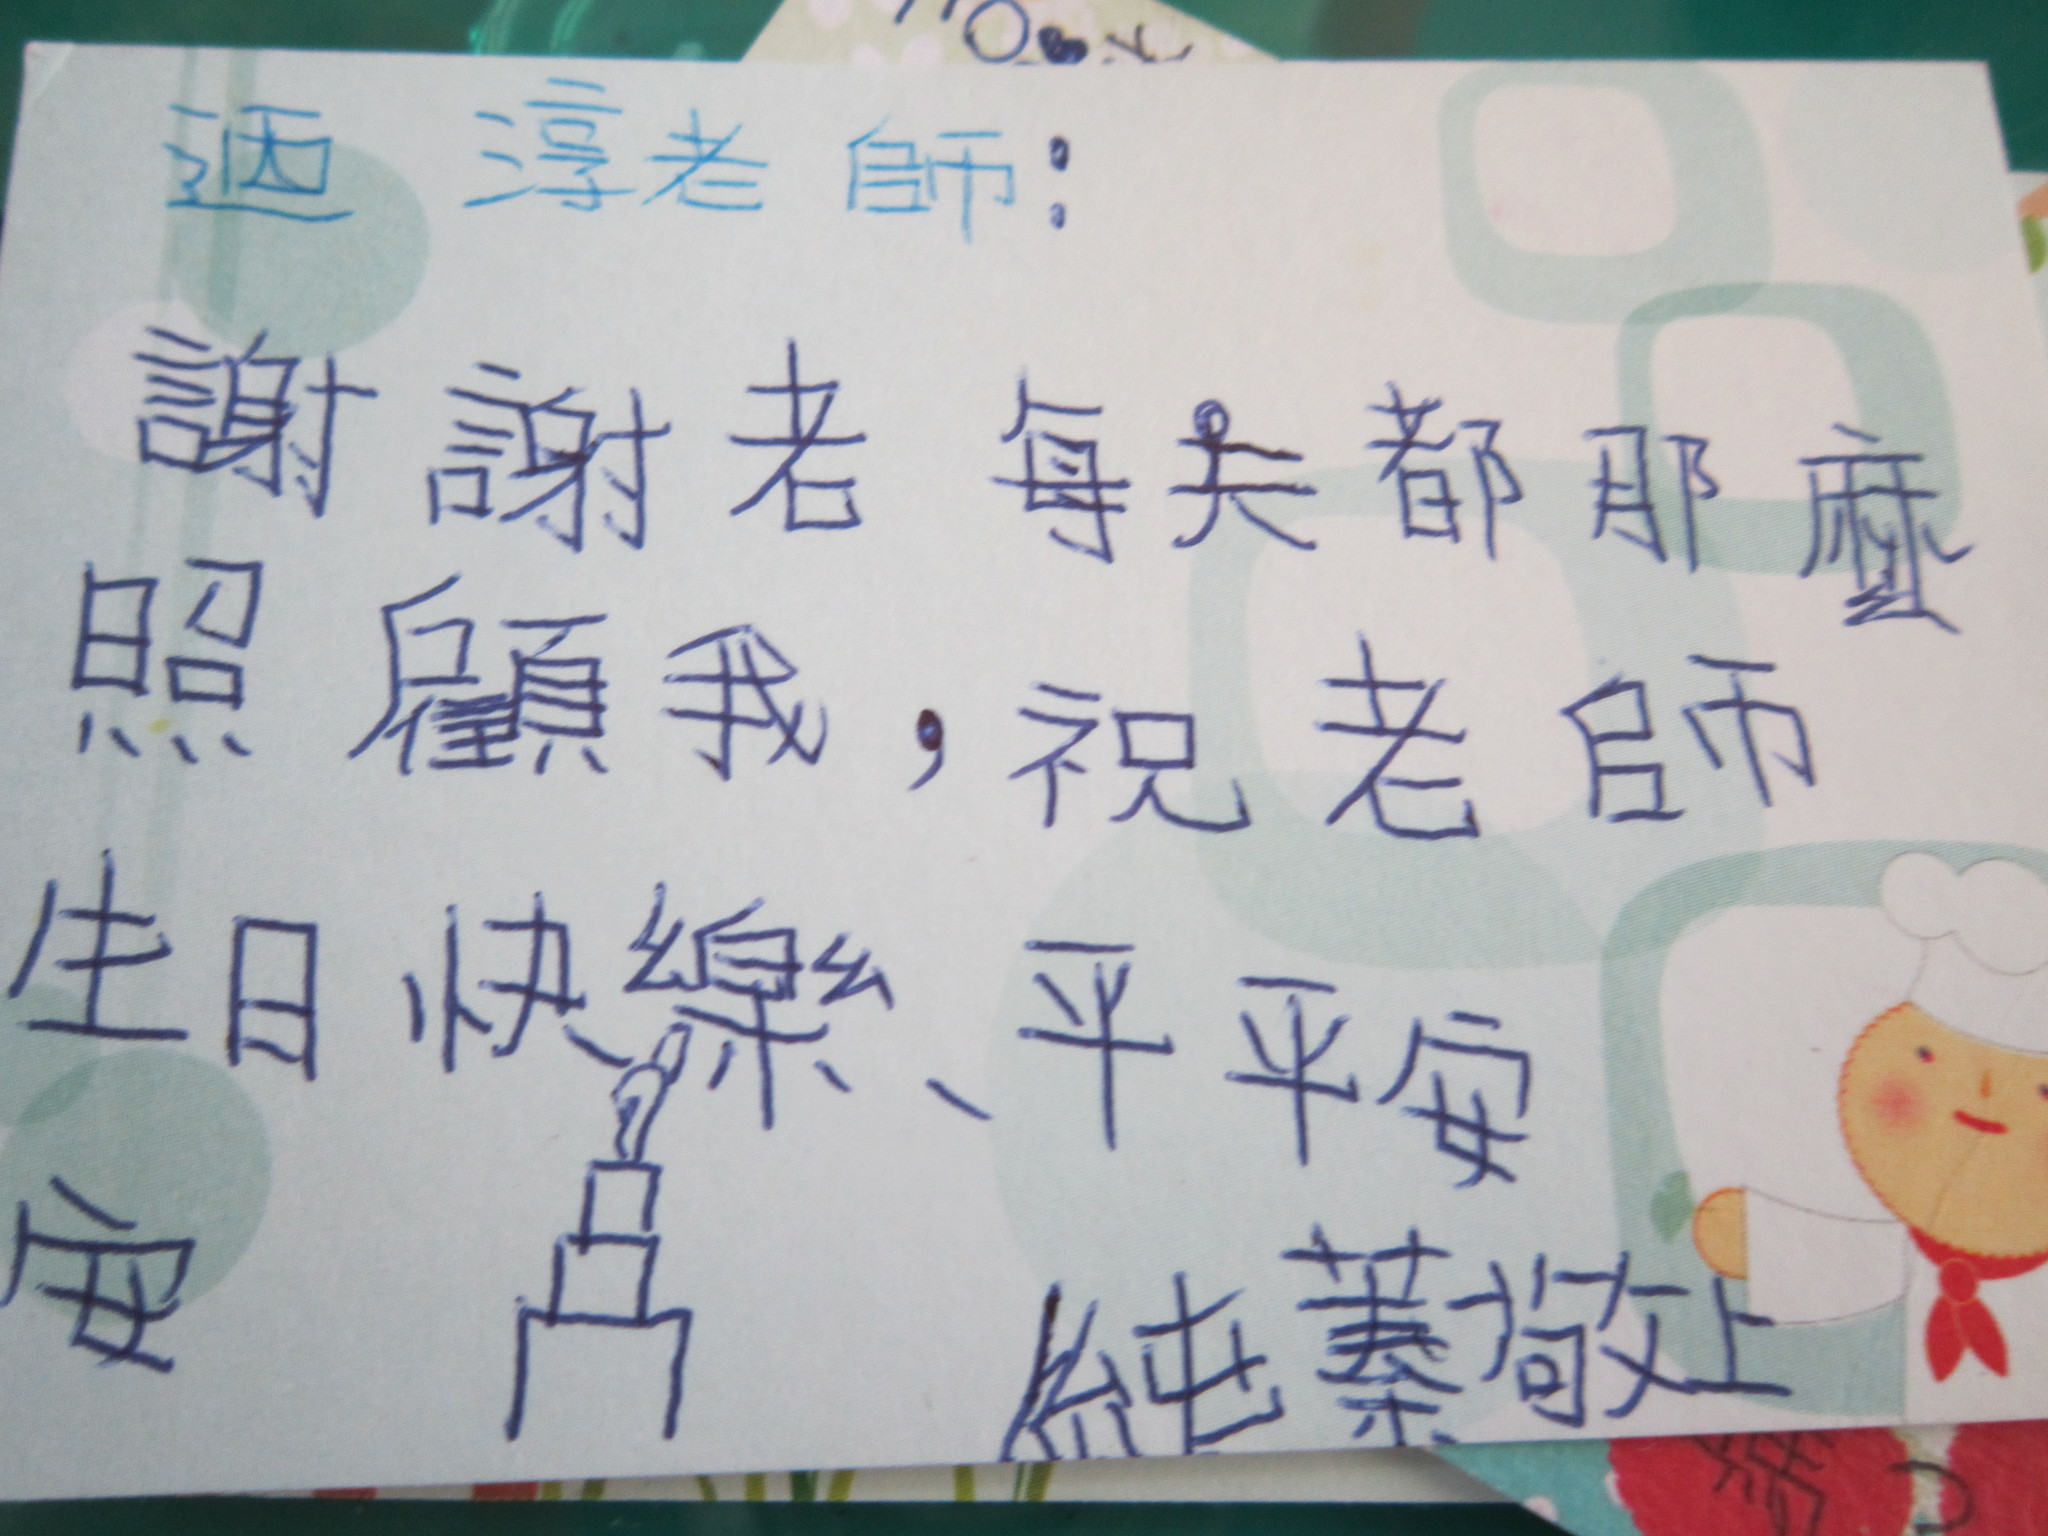 迺淳老師：
謝謝老每天都那麼
照顧我，祝老師
生日快樂、平平安
安
純蓁敬上